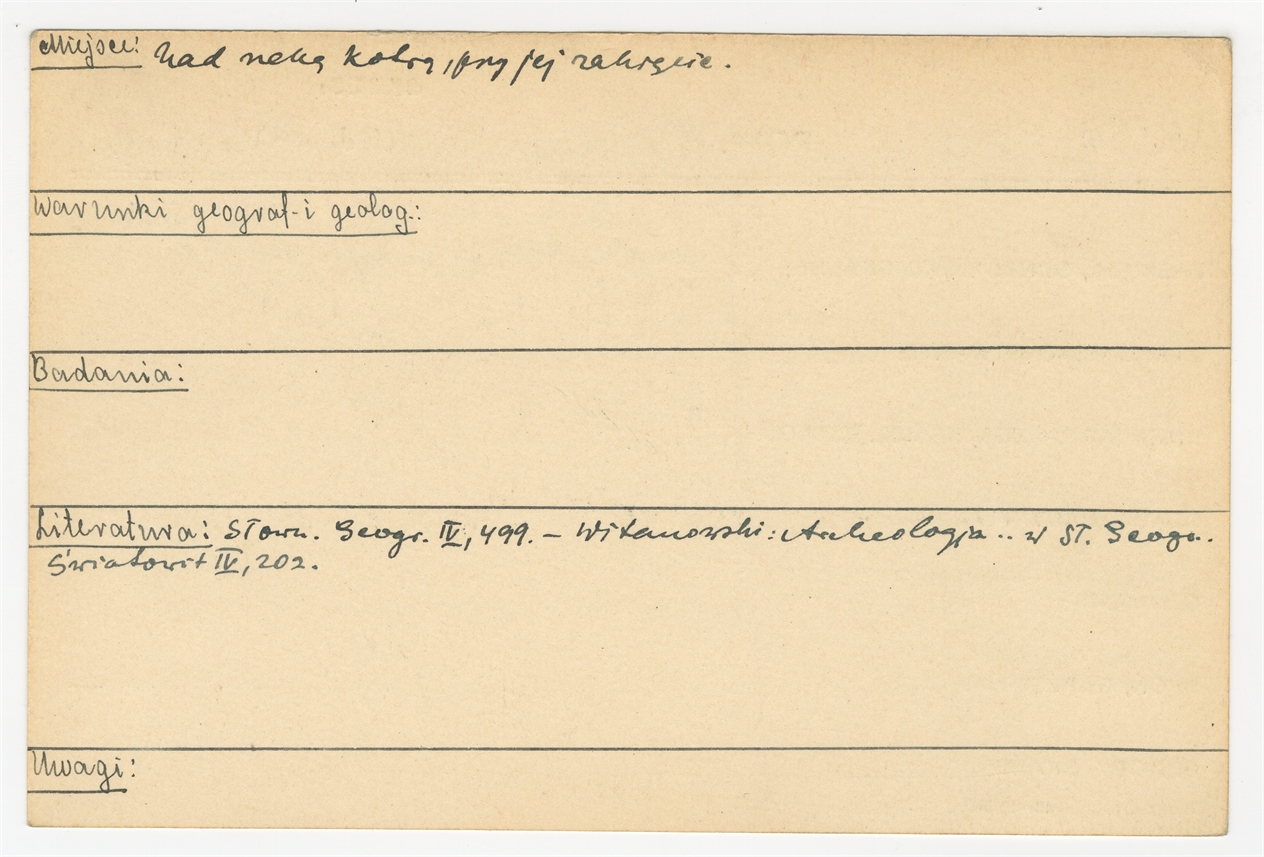 Miejsce: Nad rzeką Kobrą, przy jej zakręcie.
Warunki geograf. i geolog.:
Badania:
Literatura: Słown. Geogr. IV, 499. – Witanowski: Archeologja .. w Sł. Geogr.
Światowit IV, 202.
Uwagi: